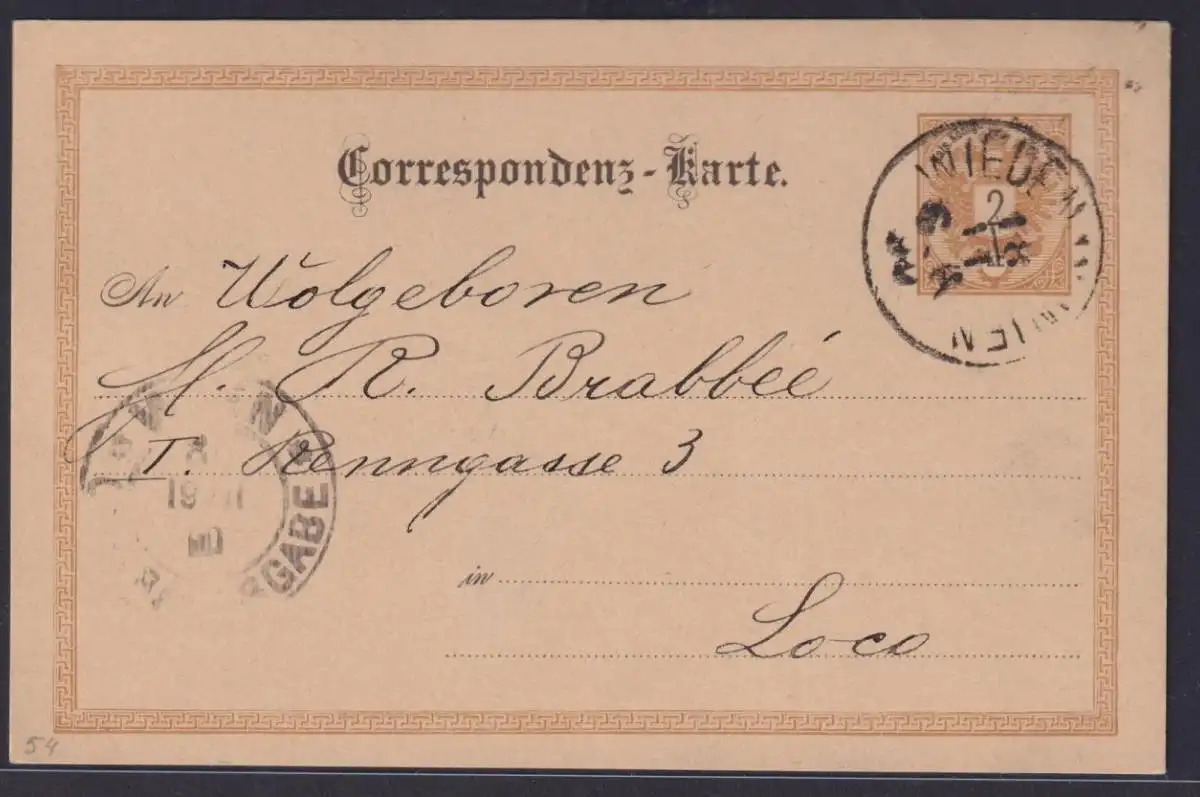 Correspondenz-Karte.
WIEDEN
2
WIEN
An Wolgeboren
H. R. Brabbée
I. Renngasse 3
in
Loco
54